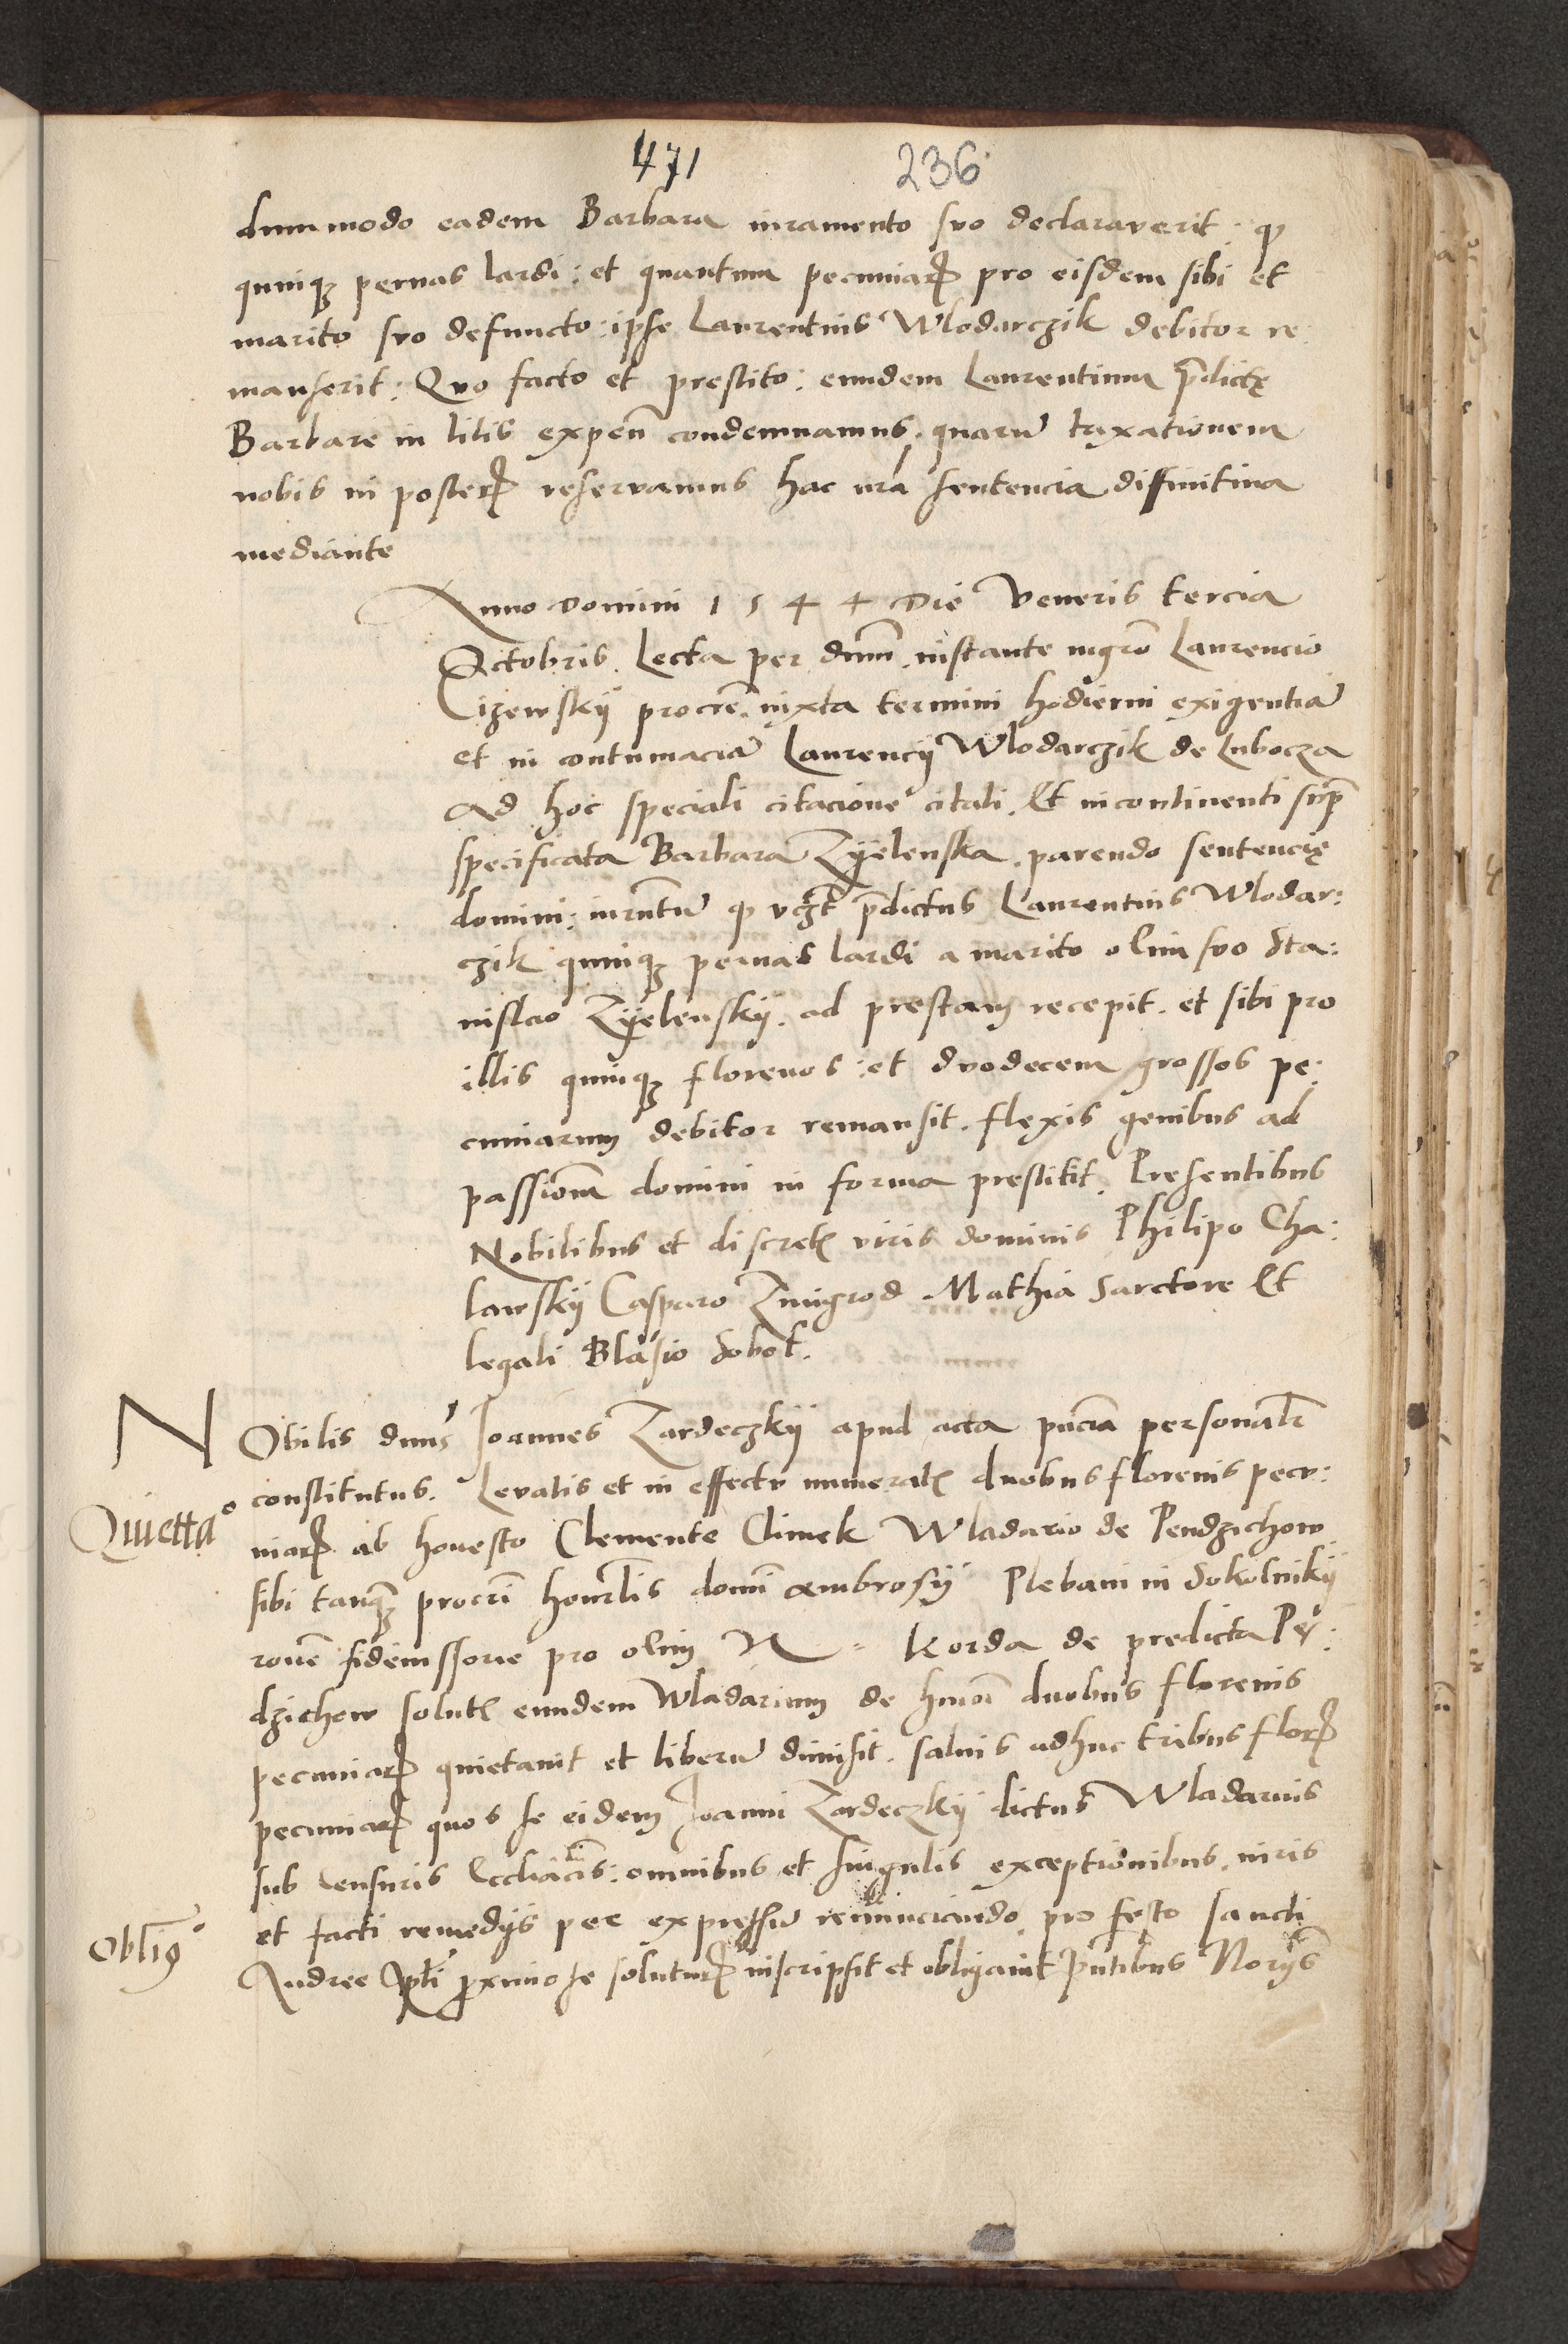 471 236
dummodo eadem Barbara iuramento suo declaraverit: ꝙ
quinqꝫ pernas lardi: et quantum pecuniarꝝ pro eisdem sibi et
marito suo defuncto: ipse Laurentius Wlodarczik debitor re:
manserit: Quo facto et prestito: eundem Laurentium p̄dictę
Barbare in litis expen̄ condemnamus, quarū taxationem
nobis in posterꝝ reservamus hac nr̄a sentencia diffinitiva
mediante
Anno Domini 1544 Die Veneris tercia
Octobris. Lecta per dnm̄. instante mgr̄o Laurencio
Lizewskÿ procrē. iuxta termini hodierni exigentiā
et in contumaciā Laurencÿ Wlodarczik de Lubocza
ad hoc speciali citacione citati. Et incontinenti sup̄
specificata Barbara Zÿelenska. parendo sentencię
domini: iurn̄tū ꝙ vꝫt p̄dictus Laurentius Wlodar:
czik quinqꝫ pernas lardi a marito olim suo Sta:
nislao Zÿelenskÿ. ad prestam recepit. et sibi pro
illis quinqꝫ florenos: et duodecem grossos pe:
cuniarum debitor remansit. flexis genibus ad
passionē domini in forma prestitit. Presentibus
Nobilibus et discretꝭ viris dominis Philipo Cha:
lawskÿ Casparo Zmigrod Mathia Sarctore Et
legali Blasio Sobot.
NObilis dnus̄ Joannes Zardeczkÿ apud acta pn̄cia personalr̄
constitutus. Levatis et in effectu numeratꝭ duobus florenis pecu:
Quietta° niarꝝ ab honesto Clemente Climek Wladario de Pendzichow
sibi tanqꝫ procri̅ honrl̄is domi̅ Ambrosÿ Plebani in Sokolnikÿ
rone̅ fideiussorie pro olim N = Korda de predicta Pē:
dzichow solutꝭ eundem Wladarium de hmoi̅ duobus florenis
pecuniarꝝ quietavit et liberū dimisit. salvis adhuc tribus florꝝ
pecuniarꝝ quos se eidem Joanni Zardeczkÿ dictus Wladarius
sub censuris Ecclīacis̄: omnibus et singulis exceptionibus. iuris
et facti remedÿs per expressū renunciando. pro festo sancti
Oblig° Andree Apl̄i proximo se soluturꝝ inscripsit et obligavit pn̄tibus Norÿs̄